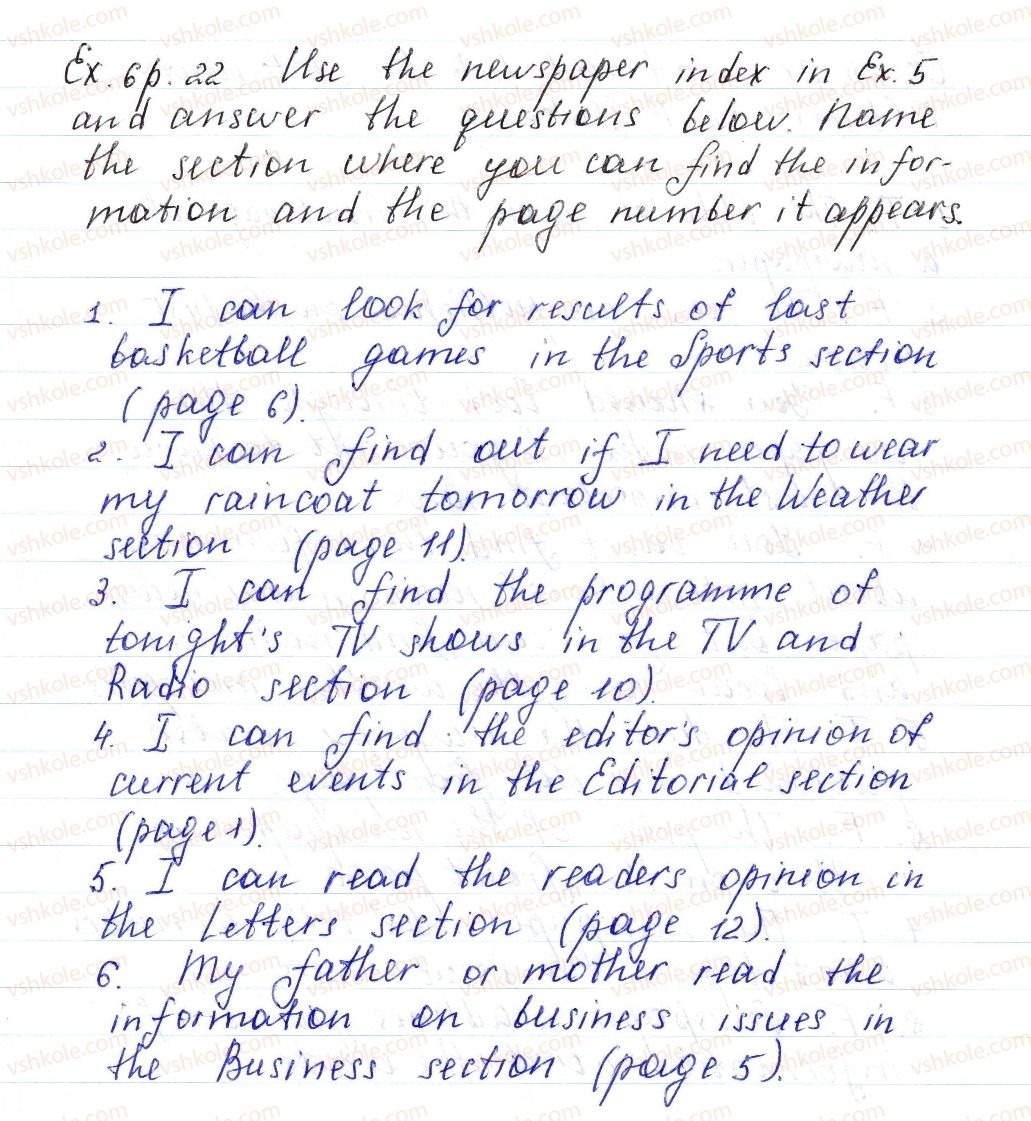 Ex. 6 p. 22 Use the newspaper index in Ex. 5
and answer the questions below. Name
the section where you can find the infor-
mation and the page number it appears.
1. I can look for results of last
basketball games in the Sports section
(page 6).
2. I can find out if I need to wear
my raincoat tomorrow in the Weather
section (page 11).
3. I can find the programme of
tonight's TV shows in the TV and
Radio section (page 10).
4. I can find the editor's opinion of
current events in the Editorial section
(page 1).
5. I can read the readers opinion in
the Letters section (page 12).
6. My father or mother read the
information on business issues in
the Business section (page 5).